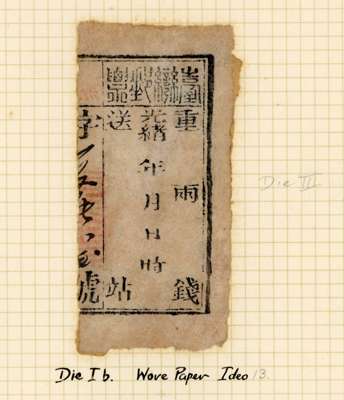 臺灣郵票
重 雨 錢
光緒 年 月 日 時
送 站
字 號
Die III
Die I b. Wove Paper Ideo 13.